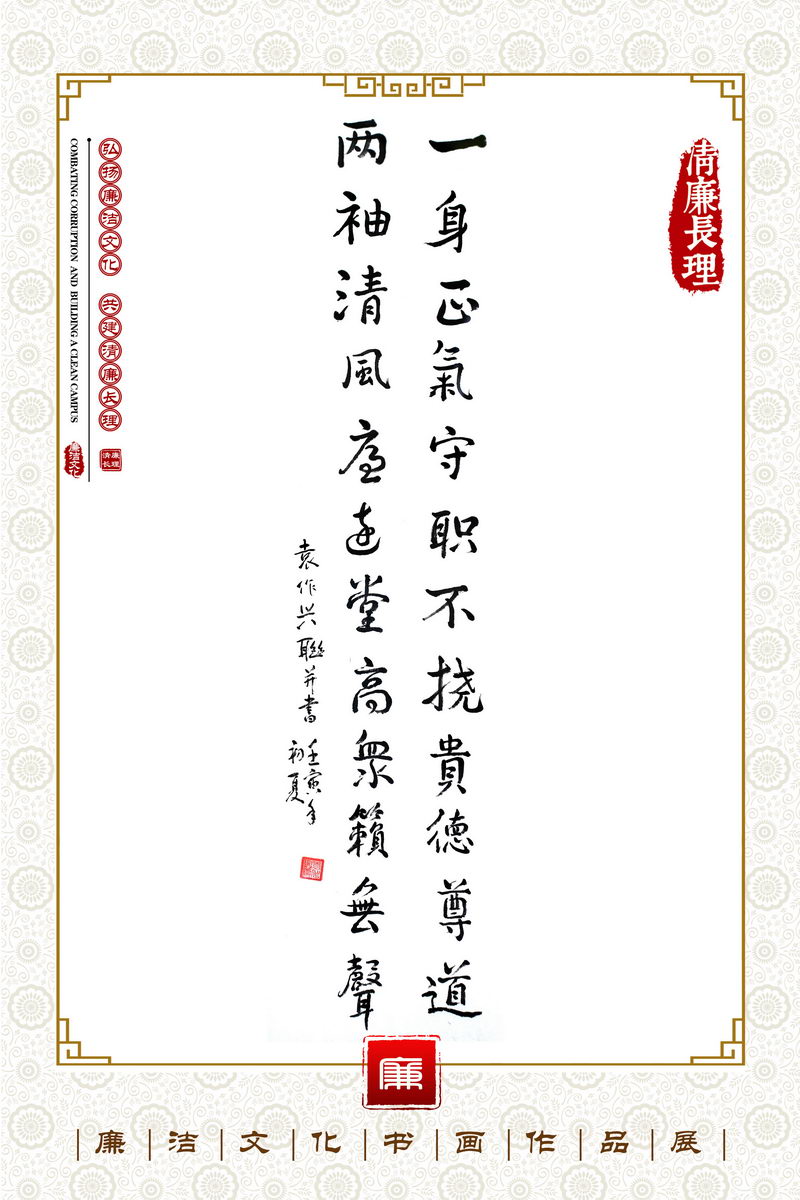 清廉長理
一身正氣守职不挠貴德尊道
两袖清風庭达堂高衆籟無聲
袁作兴聯并書
壬寅年
初夏
弘扬廉洁文化 共建清廉长理
COMBATING CORRUPTION AND BUILDING A CLEAN CAMPUS
清廉长理
廉洁文化
廉
廉洁文化书画作品展